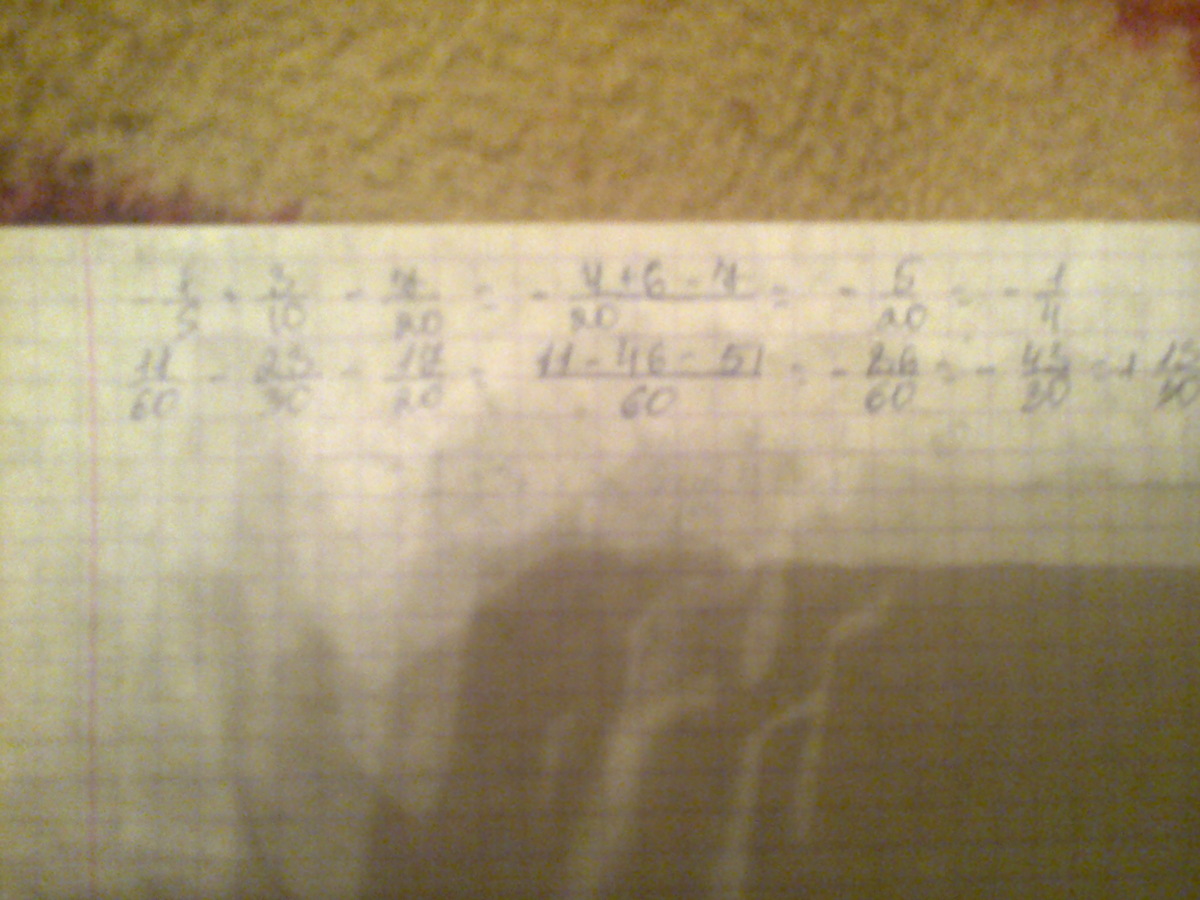 - 1/5 + 3/10 - 7/20 = - 4+6-7/20 = - 5/20 = - 1/4
11/60 - 23/30 - 17/20 = 11-46-51/60 = - 86/60 = - 43/30 =